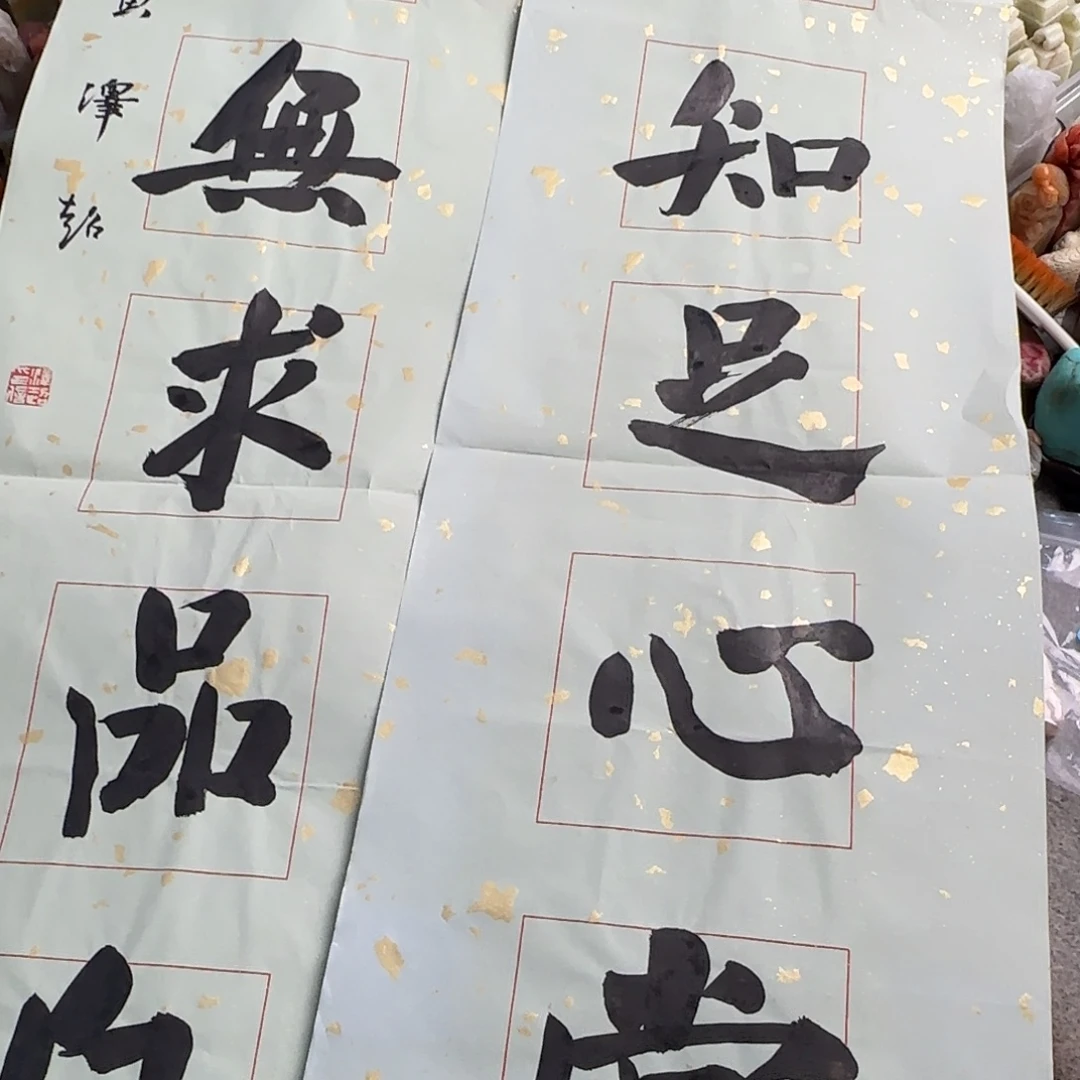 知足心常
無求品自
澤超